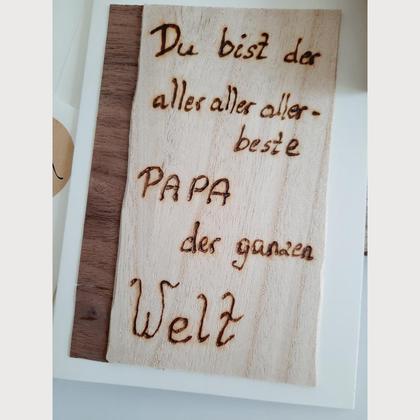 Du bist der
aller aller aller-
beste
PAPA
der ganzen
Welt